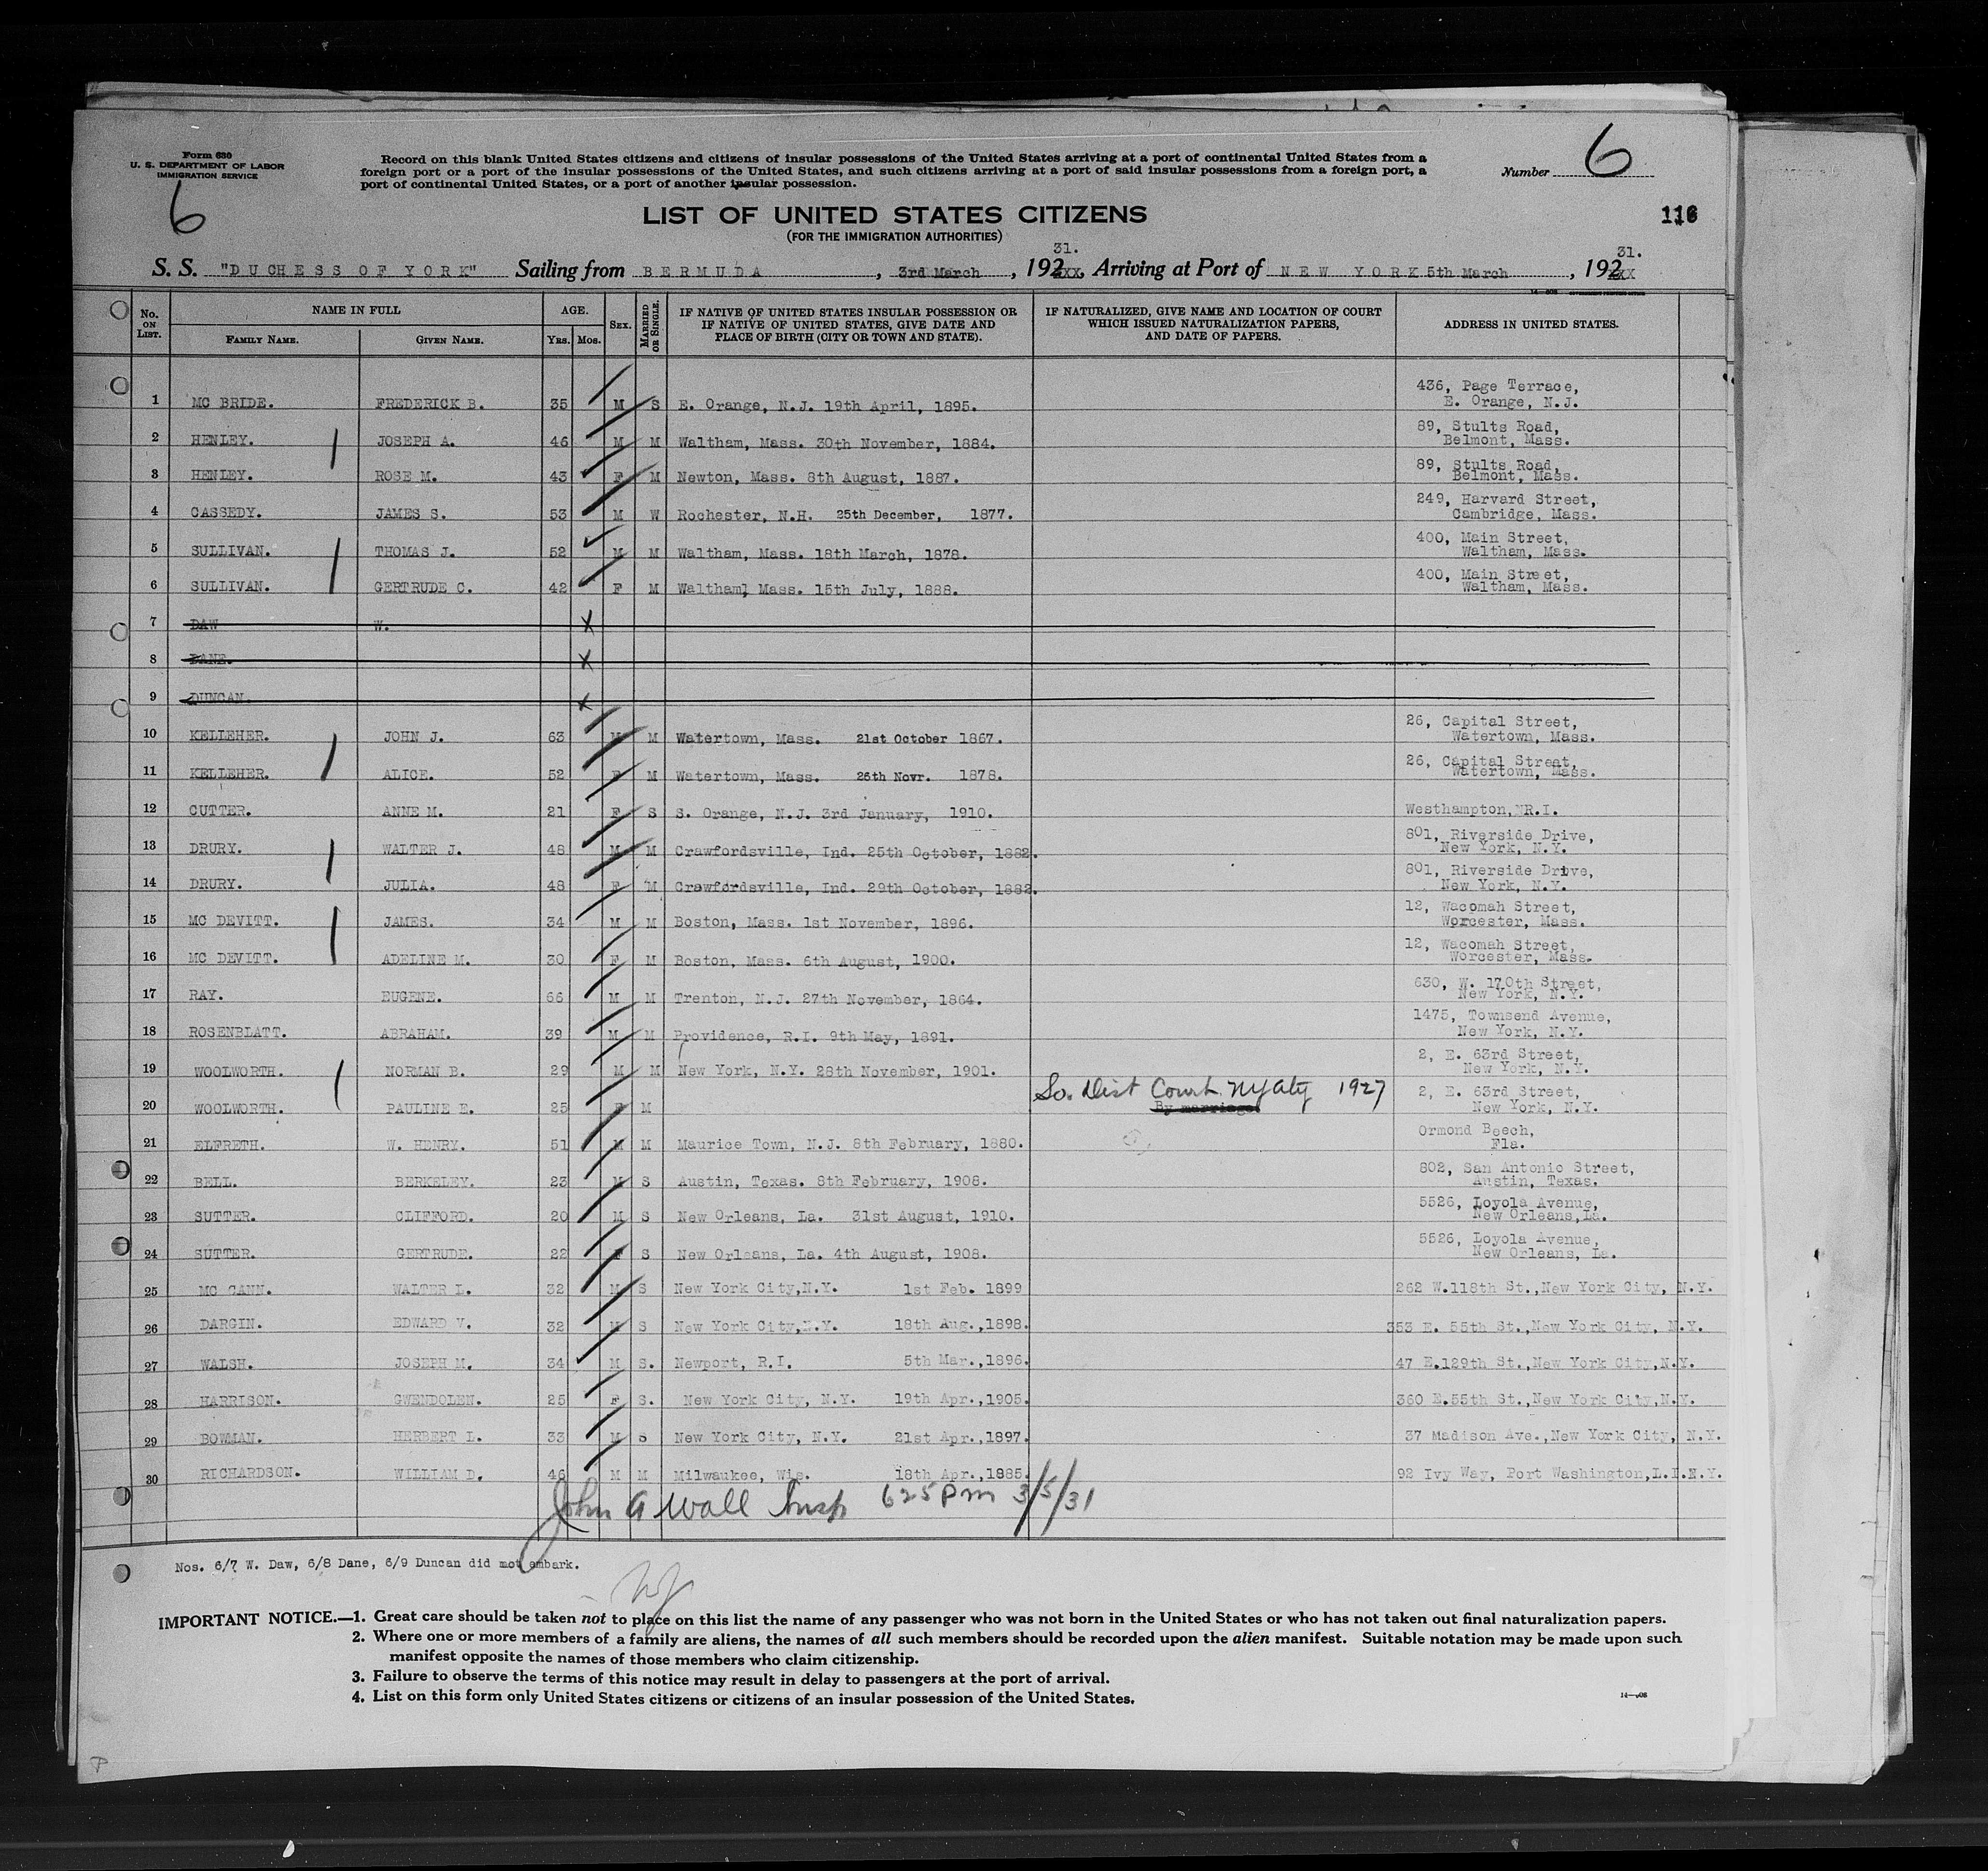 Form 630
U. S. DEPARTMENT OF LABOR
IMMIGRATION SERVICE
6
Record on this blank United States citizens and citizens of insular possessions of the United States arriving at a port of continental United States from a
foreign port or a port of the insular possessions of the United States, and such citizens arriving at a port of said insular possessions from a foreign port, a
port of continental United States, or a port of another insular possession.
Number 6
LIST OF UNITED STATES CITIZENS
116
(FOR THE IMMIGRATION AUTHORITIES)
S. S. "DUCHESS OF YORK" Sailing from BERMUDA, 3rd March, 192xxx 31., Arriving at Port of NEW YORK 5th March, 192xxx 31.
No. ON LIST. NAME IN FULL FAMILY NAME. GIVEN NAME. AGE. YRS. MOS. SEX. MARRIED OR SINGLE. IF NATIVE OF UNITED STATES INSULAR POSSESSION OR IF NATIVE OF UNITED STATES, GIVE DATE AND PLACE OF BIRTH (CITY OR TOWN AND STATE). IF NATURALIZED, GIVE NAME AND LOCATION OF COURT WHICH ISSUED NATURALIZATION PAPERS, AND DATE OF PAPERS. ADDRESS IN UNITED STATES.
1 MC BRIDE. FREDERICK B. 35 M S E. Orange, N.J. 19th April, 1895. 436, Page Terrace, E. Orange, N.J.
2 HENLEY. JOSEPH A. 46 M M Waltham, Mass. 30th November, 1884. 89, Stults Road, Belmont, Mass.
3 HENLEY. ROSE M. 43 F M Newton, Mass. 8th August, 1887. 89, Stults Road, Belmont, Mass.
4 CASSEDY. JAMES S. 53 M W Rochester, N.H. 25th December, 1877. 249, Harvard Street, Cambridge, Mass.
5 SULLIVAN. THOMAS J. 52 M M Waltham, Mass. 18th March, 1878. 400, Main Street, Waltham, Mass.
6 SULLIVAN. GERTRUDE C. 42 F M Waltham, Mass. 15th July, 1888. 400, Main Street, Waltham, Mass.
7 DAW W. X
8 DANE. X
9 DUNCAN. X
10 KELLEHER. JOHN J. 63 M M Watertown, Mass. 21st October 1867. 26, Capital Street, Watertown, Mass.
11 KELLEHER. ALICE. 52 F M Watertown, Mass. 26th Novr. 1878. 26, Capital Street, Watertown, Mass.
12 CUTTER. ANNE M. 21 F S S. Orange, N.J. 3rd January, 1910. Westhampton, R.I.
13 DRURY. WALTER J. 48 M M Crawfordsville, Ind. 25th October, 1882. 801, Riverside Drive, New York, N.Y.
14 DRURY. JULIA. 48 F M Crawfordsville, Ind. 29th October, 1882. 801, Riverside Drive, New York, N.Y.
15 MC DEVITT. JAMES. 34 M M Boston, Mass. 1st November, 1896. 12, Wacomah Street, Worcester, Mass.
16 MC DEVITT. ADELINE M. 30 F M Boston, Mass. 6th August, 1900. 12, Wacomah Street, Worcester, Mass.
17 RAY. EUGENE. 66 M M Trenton, N.J. 27th November, 1864. 630, W. 170th Street, New York, N.Y.
18 ROSENBLATT. ABRAHAM. 39 M M Providence, R.I. 9th May, 1891. 1475, Townsend Avenue, New York, N.Y.
19 WOOLWORTH. NORMAN B. 29 M M New York, N.Y. 28th November, 1901. 2, E. 63rd Street, New York, N.Y.
20 WOOLWORTH. PAULINE E. 25 F M So. Dist Court NY City 1927 By marriage 2, E. 63rd Street, New York, N.Y.
21 ELFRETH. W. HENRY. 51 M M Maurice Town, N.J. 8th February, 1880. Ormond Beech, Fla.
22 BELL. BERKELEY. 23 M S Austin, Texas. 8th February, 1908. 802, San Antonio Street, Austin, Texas.
23 SUTTER. CLIFFORD. 20 M S New Orleans, La. 31st August, 1910. 5526, Loyola Avenue, New Orleans, La.
24 SUTTER. GERTRUDE. 22 F S New Orleans, La. 4th August, 1908. 5526, Loyola Avenue, New Orleans, La.
25 MC CANN. WALTER L. 32 M S New York City, N.Y. 1st Feb. 1899 262 W.118th St., New York City, N.Y.
26 DARGIN. EDWARD V. 32 M S New York City, N.Y. 18th Aug., 1898. 353 E. 55th St., New York City, N.Y.
27 WALSH. JOSEPH M. 34 M S. Newport, R.I. 5th Mar., 1896. 47 E.129th St., New York City, N.Y.
28 HARRISON. GWENDOLEN. 25 F S. New York City, N.Y. 19th Apr., 1905. 360 E.55th St., New York City, N.Y.
29 BOWMAN. HERBERT L. 33 M S New York City, N.Y. 21st Apr., 1897. 37 Madison Ave., New York City, N.Y.
30 RICHARDSON. WILLIAM D. 46 M M Milwaukee, Wis. 18th Apr., 1885. 92 Ivy Way, Port Washington, L.I.N.Y.
John A Wall Insp 625 Pm 3/5/31
Nos. 6/7 W. Daw, 6/8 Dane, 6/9 Duncan did not embark.
IMPORTANT NOTICE.—1. Great care should be taken not to place on this list the name of any passenger who was not born in the United States or who has not taken out final naturalization papers.
2. Where one or more members of a family are aliens, the names of all such members should be recorded upon the alien manifest. Suitable notation may be made upon such
manifest opposite the names of those members who claim citizenship.
3. Failure to observe the terms of this notice may result in delay to passengers at the port of arrival.
4. List on this form only United States citizens or citizens of an insular possession of the United States.